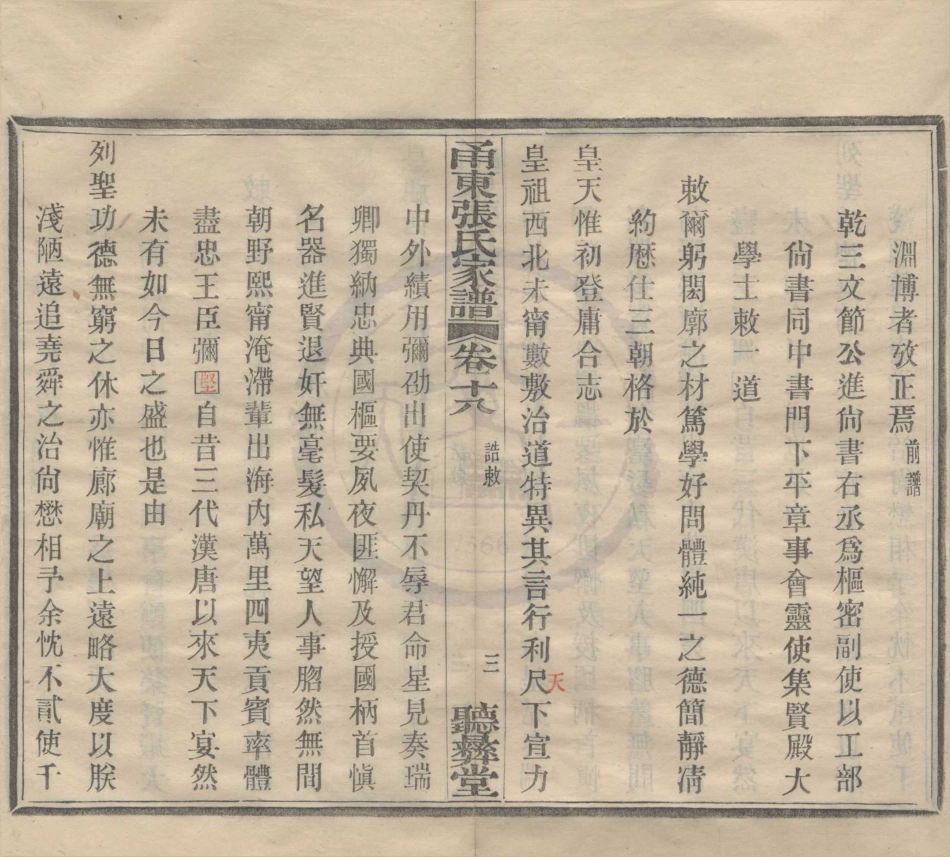 淵博者攷正焉前譜
乾三文節公進尙書右丞爲樞密副使以工部
尙書同中書門下平章事會靈使集賢殿大
學士敕一道
敕爾躬閎廓之材篤學好問體純一之德簡靜淸
約歷仕三朝格於
皇天惟初登庸合志
皇祖西北未甯數敷治道特異其言行利尺下宣力
天
甬東張氏家譜 卷十八 誥敕 三 聽彝堂
中外績用彌劭出使契丹不辱君命星見奏瑞
卿獨納忠典國樞要夙夜匪懈及授國柄首愼
名器進賢退奸無毫髮私天望人事脗然無間
朝野熙甯淹滯輩出海內萬里四夷貢賓率體
盡忠王臣彌堅自昔三代漢唐以來天下宴然
未有如今日之盛也是由
列聖功德無窮之休亦惟廊廟之上遠略大度以朕
淺陋遠追堯舜之治尙懋相予余忱不貳使千